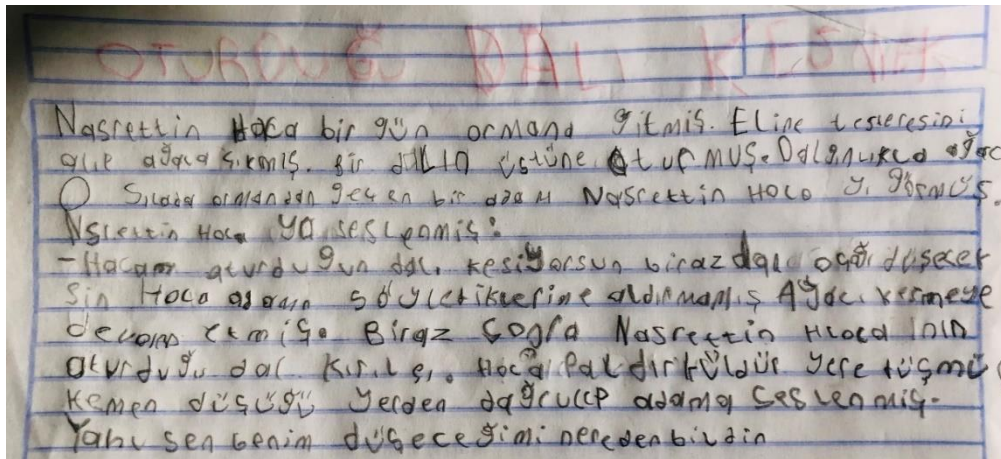 OTURDUĞU DALI KESMEK
Nasrettin Hoca bir gün ormana gitmiş. Eline testeresini
alıp ağaca çıkmış. bir dalın üstüne oturmuş. Dalgınlıkla ağac
O sırada ormandan geçen bir adam Nasrettin Hoca yı görmüş.
Nsrettin Hoca ya seslenmiş:
-Hacam aturduğun dalı kesiyorsun biraz daha düşecek
sin Hoca adamın söyletiklerine aldırmamış Ağacı kesmeye
devam etmiş. Biraz sogra Nasrettin Hocaının
aturduğu dal Hoca Paldır küldür yere tüşmü
Kemen düşüğü yerden dağrulup adama seslenmiş.
Yahu sen benim düşeceğimi nereden bildin